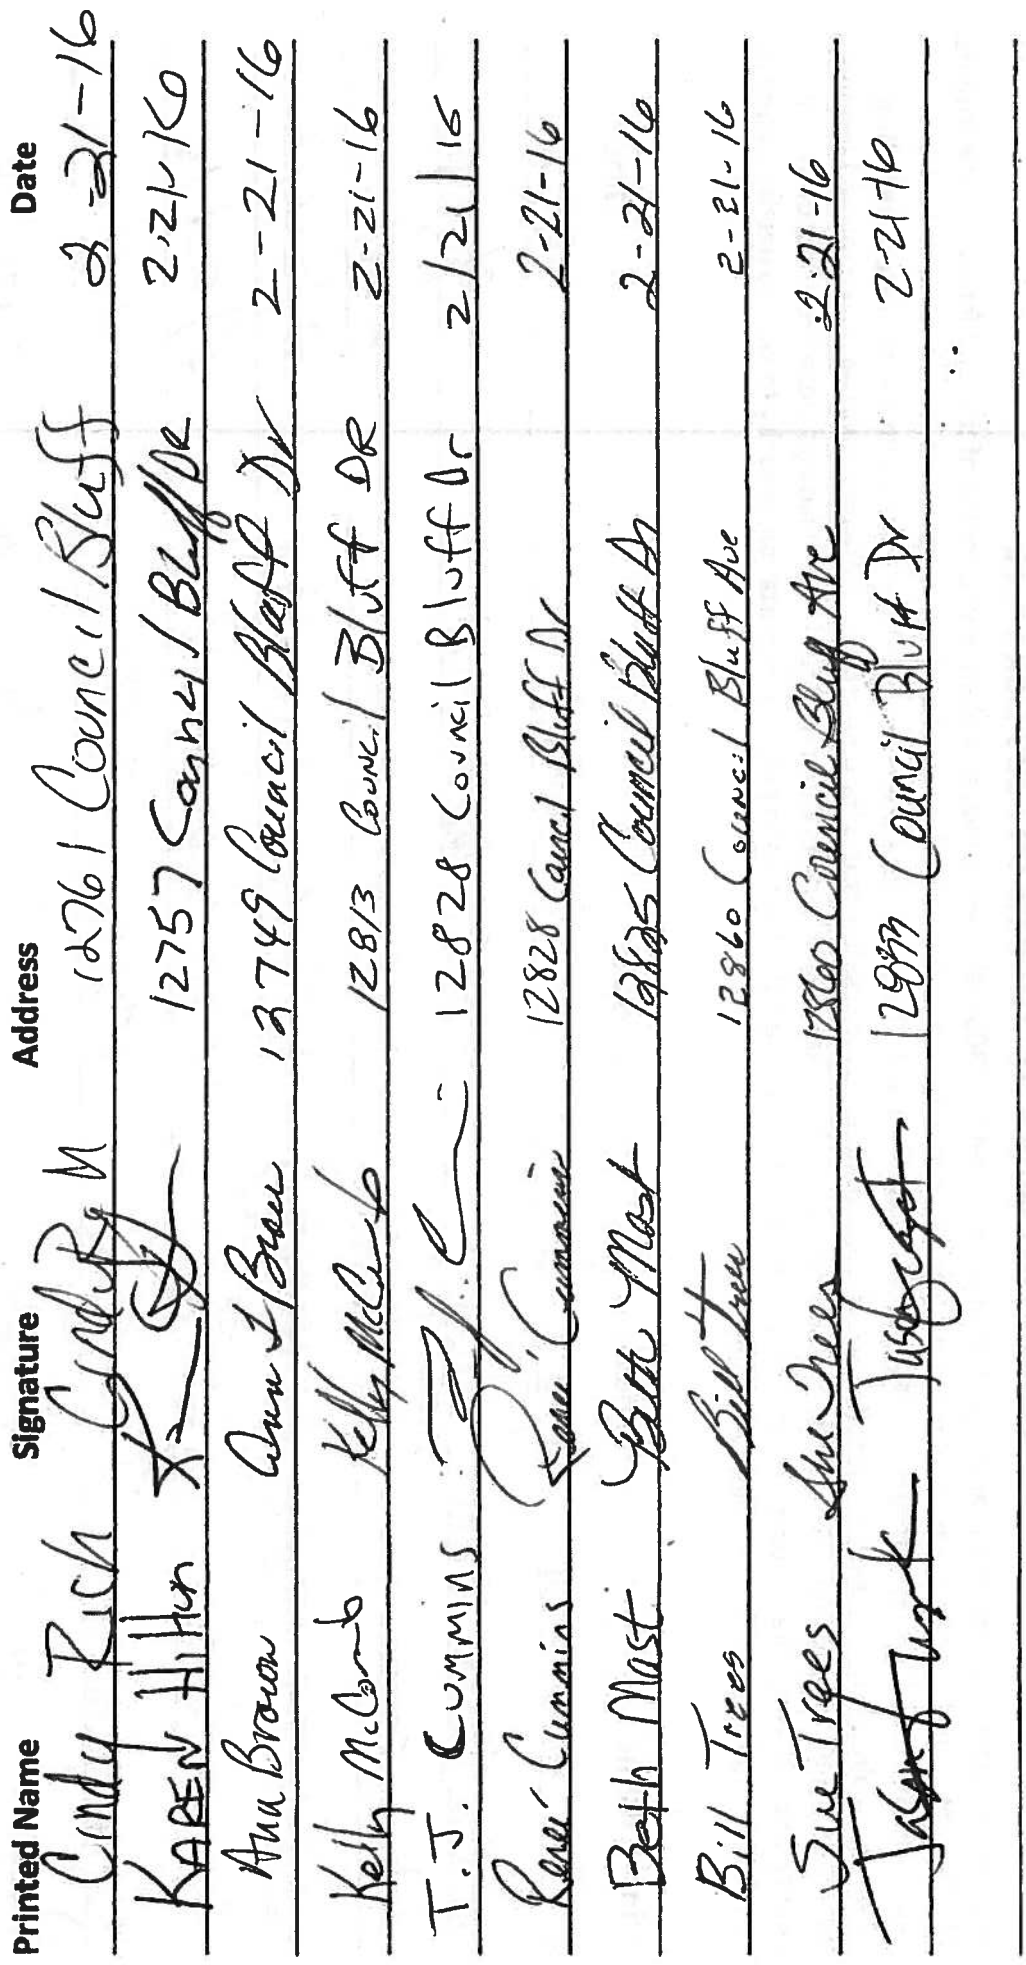 Printed Name Signature Address Date
Cindy Rich Cindy R 12761 Council Bluff 2-21-16
KAREN Hilton 12757 Council Bluff DR 2-21-16
Ann Brown Ann L Brown 12749 Council Bluff Dr 2-21-16
Kelly McComb Kelly McComb 12813 Council Bluff DR 2-21-16
T.J. Cummins 12828 Council Bluff Dr 2/21/16
Reneé Cummins Renee Cummins 12828 Council Bluff Dr 2-21-16
Beth Mast Beth Mast 12825 Council Bluff Dr 2-21-16
Bill Trees Bill Trees 12860 Council Bluff Ave 2-21-16
Sue Trees Sue Trees 12860 Council Bluff Ave 2-21-16
Jason Council Bluff Dr 2-21-16